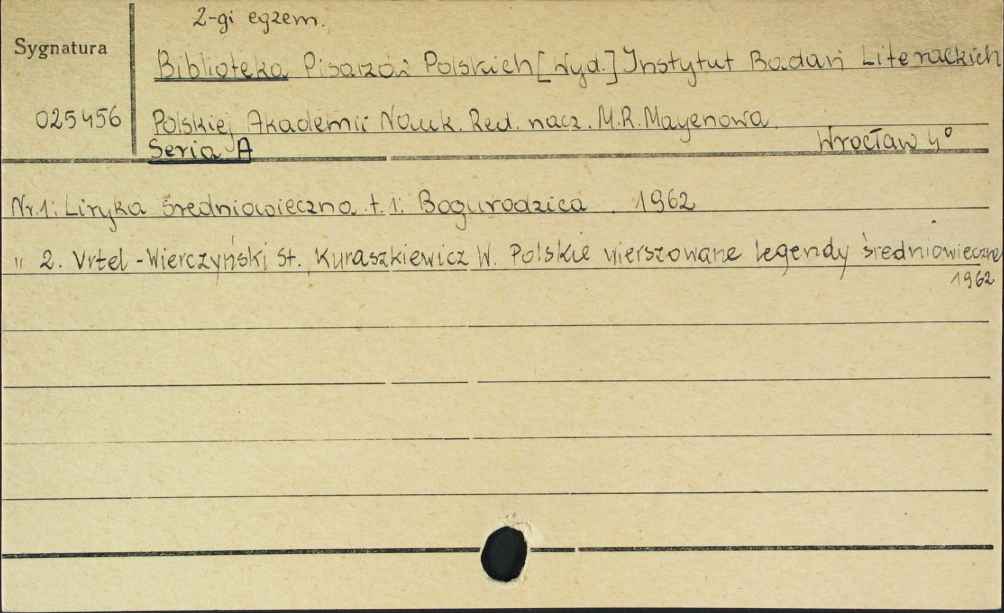 2-gi egzem.
Sygnatura
Biblioteka Pisarzów Polskich [Wyd.] Instytut Badań Literackich
025456 Polskiej Akademii Nauk. Red. nacz. M.R. Mayenowa
Seria A Wrocław 4°
Nr. 1: Liryka średniowieczna. t. 1: Bogurodzica. 1962
" 2. Vrtel-Wierczyński St., Kuraszkiewicz W. Polskie wierszowane legendy średniowieczne
1962